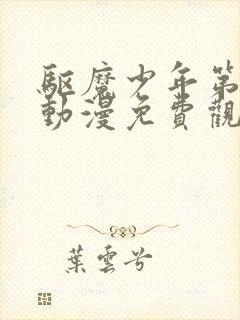 驅魔少年第
動漫免費觀
葉雲兮